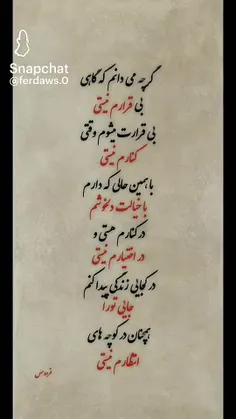 Snapchat
@ferdaws.0
گرچه می دانم که گاهی
بی قرارم نیستی
بی قرارت میشوم وقتی
کنارم نیستی
با همین حالی که دارم
با خیالت دلخوشم
در کنارم هستی و
در اختیارم نیستی
در کجایی زندگی پیدا کنم
جایی تو را
همچنان در کوچه های
انتظارم نیستی